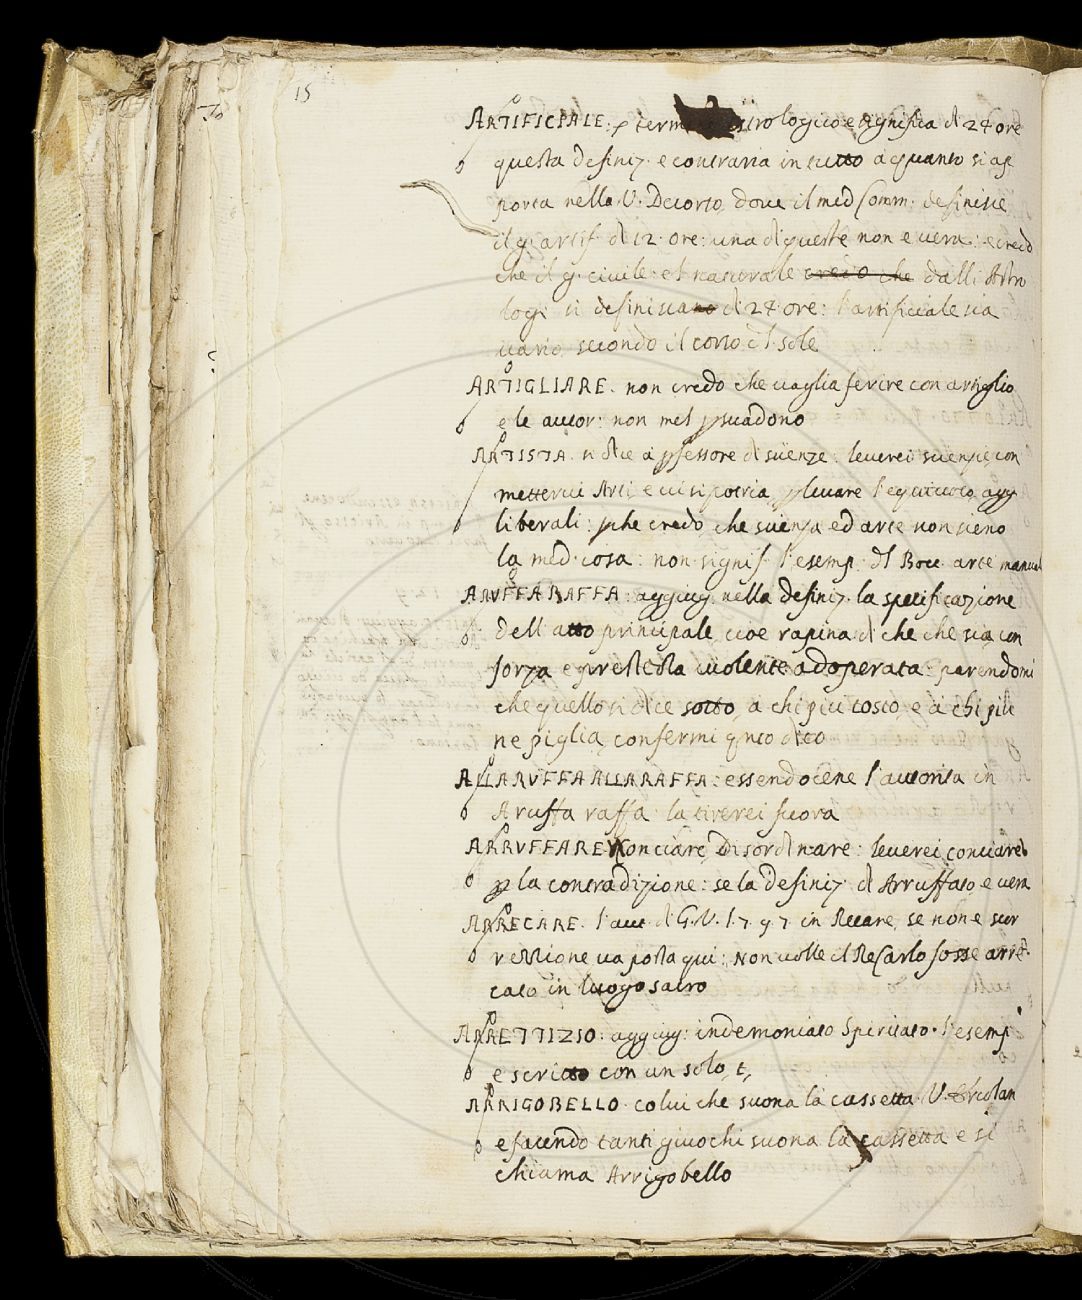 15
ARTIFICIALE: p termine astrologico e significa di 24 ore
questa definiz. e contraria in tutto a quanto si ap
porta nella V. Decorto dove il med Comm. definisce
il g. artif. di 12. ore: una di queste non e vera: e credo
che il g. civile: e 'l naturale credo che dalli Astro
logi si definiscano di 24 ore: l'artificiale sia
vario, secondo il corso d'l sole
ARTIGLIARE. non credo che vaglia ferire con artiglio
e le autor: non mel psuadono
ARTISTA. si dice a pfessore di scienze: leverei scienze, con
mettervi Arti, e vi si potria, p levare l'equivoco agg.
liberali: pche credo che scienza ed arte non sieno
la med. cosa: non signif. l'esemp. d'l Bocc. arte manual
ARUFFA RAFFA: aggiug. nella definiz. la specificazione
dell atto principale, cioe rapina di che che sia, con
forza e prestezza violente adoperata: parendomi
che quello si dice sotto, a chi piu tosto, e a chi piu
ne piglia, confermi qnto dico
ALLA RUFFA ALLA RAFFA: essendocene l'autorita in
Aruffa raffa la tirerei fuora
ARRUFFARE Sconciare, Disordinare: leverei, conciare
p la contradizione: se la definiz. di Arruffato, e vera
ARRECARE. l'aut. di G. V. l. 7. 9 7 in Recare, se non e scor
rezzione va posta qui: Non volle il Re Carlo fosse arre
cato in luogo sacro
ARRETTIZIO: aggiug: indemoniato Spiritato. l'esemp
e scritto con un solo, t,
ARRIGOBELLO. colui che suona la cassetta. V. Ercolan
e facendo tanti giuochi suona la cassetta e si
chiama Arrigobello